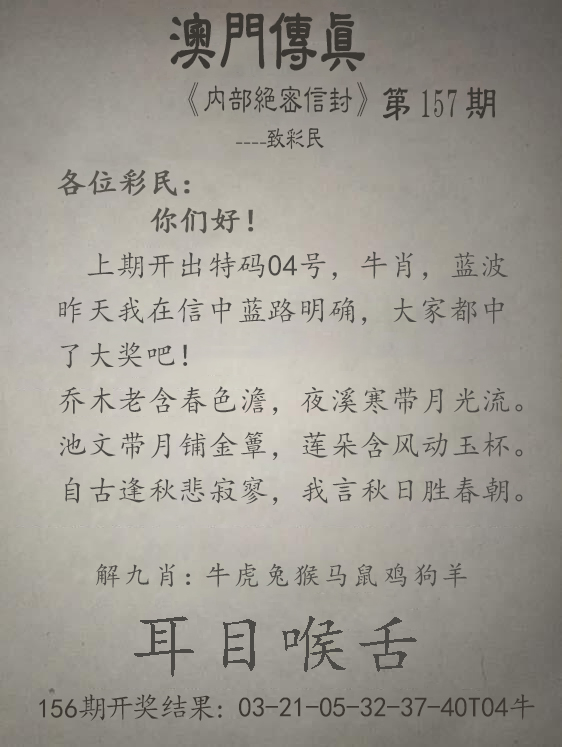 澳門傳眞
《内部絕密信封》第157期
----致彩民
各位彩民：
你们好！
上期开出特码04号，牛肖，蓝波
昨天我在信中蓝路明确，大家都中
了大奖吧！
乔木老含春色澹，夜溪寒带月光流。
池文带月铺金簟，莲朵含风动玉杯。
自古逢秋悲寂寥，我言秋日胜春朝。
解九肖：牛虎兔猴马鼠鸡狗羊
耳目喉舌
156期开奖结果：03-21-05-32-37-40T04牛